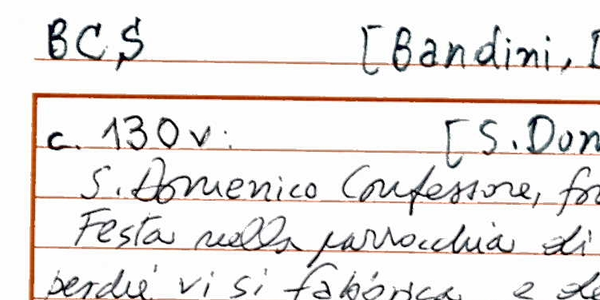 BCS [Bandini,
c. 130v: [S. Dom
S. Domenico Confessore, fr
Festa nella parrocchia di
perché vi si fabbrica, e de